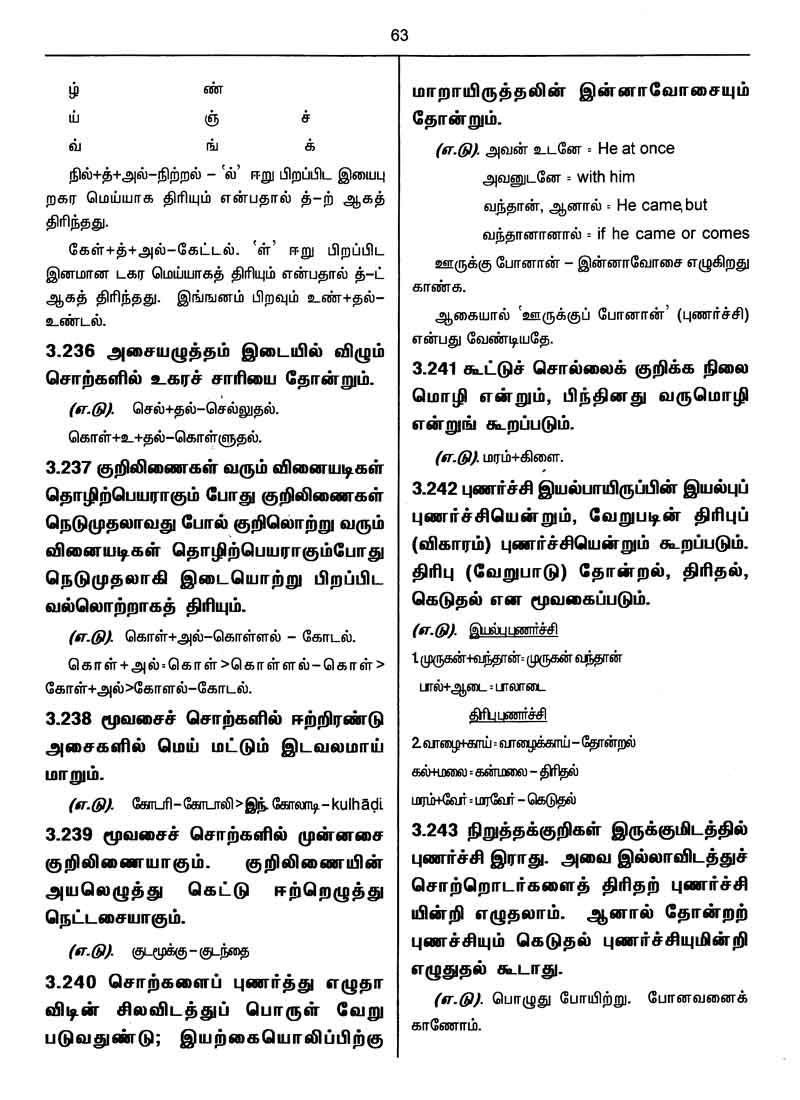 63
ழ் ண்
ய் ஞ் ச்
வ் ங் க்
நில்+த்+அல்–நிற்றல் – ‘ல்’ ஈறு பிறப்பிட இயைபு
றகர மெய்யாக திரியும் என்பதால் த்–ற் ஆகத்
திரிந்தது.
கேள்+த்+அல்–கேட்டல். ‘ள்’ ஈறு பிறப்பிட
இனமான டகர மெய்யாகத் திரியும் என்பதால் த்–ட்
ஆகத் திரிந்தது. இங்ஙனம் பிறவும் உண்+தல்–
உண்டல்.
3.236 அசையழுத்தம் இடையில் விழும்
சொற்களில் உகரச் சாரியை தோன்றும்.
(எ.டு). செல்+தல்–செல்லுதல்.
கொள்+உ+தல்–கொள்ளுதல்.
3.237 குறிலிணைகள் வரும் வினையடிகள்
தொழிற்பெயராகும் போது குறிலிணைகள்
நெடுமுதலாவது போல் குறிலொற்று வரும்
வினையடிகள் தொழிற்பெயராகும்போது
நெடுமுதலாகி இடையொற்று பிறப்பிட
வல்லொற்றாகத் திரியும்.
(எ.டு). கொள்+அல்–கொள்ளல் – கோடல்.
கொள்+அல்=கொள்>கொள்ளல்–கொள்>
கோள்+அல்>கோளல்–கோடல்.
3.238 மூவசைச் சொற்களில் ஈற்றிரண்டு
அசைகளில் மெய் மட்டும் இடவலமாய்
மாறும்.
(எ.டு). கோடரி–கோடாலி>இந். கோலாடி–kulhāḍi
3.239 மூவசைச் சொற்களில் முன்னசை
குறிலிணையாகும். குறிலிணையின்
அயலெழுத்து கெட்டு ஈற்றெழுத்து
நெட்டசையாகும்.
(எ.டு). குடமூக்கு–குடந்தை
3.240 சொற்களைப் புணர்த்து எழுதா
விடின் சிலவிடத்துப் பொருள் வேறு
படுவதுண்டு; இயற்கையொலிப்பிற்கு
மாறாயிருத்தலின் இன்னாவோசையும்
தோன்றும்.
(எ.டு). அவன் உடனே = He at once
அவனுடனே = with him
வந்தான், ஆனால் = He came, but
வந்தானானால் = if he came or comes
ஊருக்கு போனான் – இன்னாவோசை எழுகிறது
காண்க.
ஆகையால் ‘ஊருக்குப் போனான்’ (புணர்ச்சி)
என்பது வேண்டியதே.
3.241 கூட்டுச் சொல்லைக் குறிக்க நிலை
மொழி என்றும், பிந்தினது வருமொழி
என்றுங் கூறப்படும்.
(எ.டு). மரம்+கிளை.
3.242 புணர்ச்சி இயல்பாயிருப்பின் இயல்புப்
புணர்ச்சியென்றும், வேறுபடின் திரிபுப்
(விகாரம்) புணர்ச்சியென்றும் கூறப்படும்.
திரிபு (வேறுபாடு) தோன்றல், திரிதல்,
கெடுதல் என மூவகைப்படும்.
(எ.டு). இயல்புபுணர்ச்சி
1.முருகன்+வந்தான்=முருகன் வந்தான்
பால்+ஆடை=பாலாடை
திரிபுபுணர்ச்சி
2.வாழை+காய்=வாழைக்காய்–தோன்றல்
கல்+மலை=கன்மலை–திரிதல்
மரம்+வேர்=மரவேர்–கெடுதல்
3.243 நிறுத்தக்குறிகள் இருக்குமிடத்தில்
புணர்ச்சி இராது. அவை இல்லாவிடத்துச்
சொற்றொடர்களைத் திரிதற் புணர்ச்சி
யின்றி எழுதலாம். ஆனால் தோன்றற்
புணச்சியும் கெடுதல் புணர்ச்சியுமின்றி
எழுதுதல் கூடாது.
(எ.டு). பொழுது போயிற்று. போனவனைக்
காணோம்.